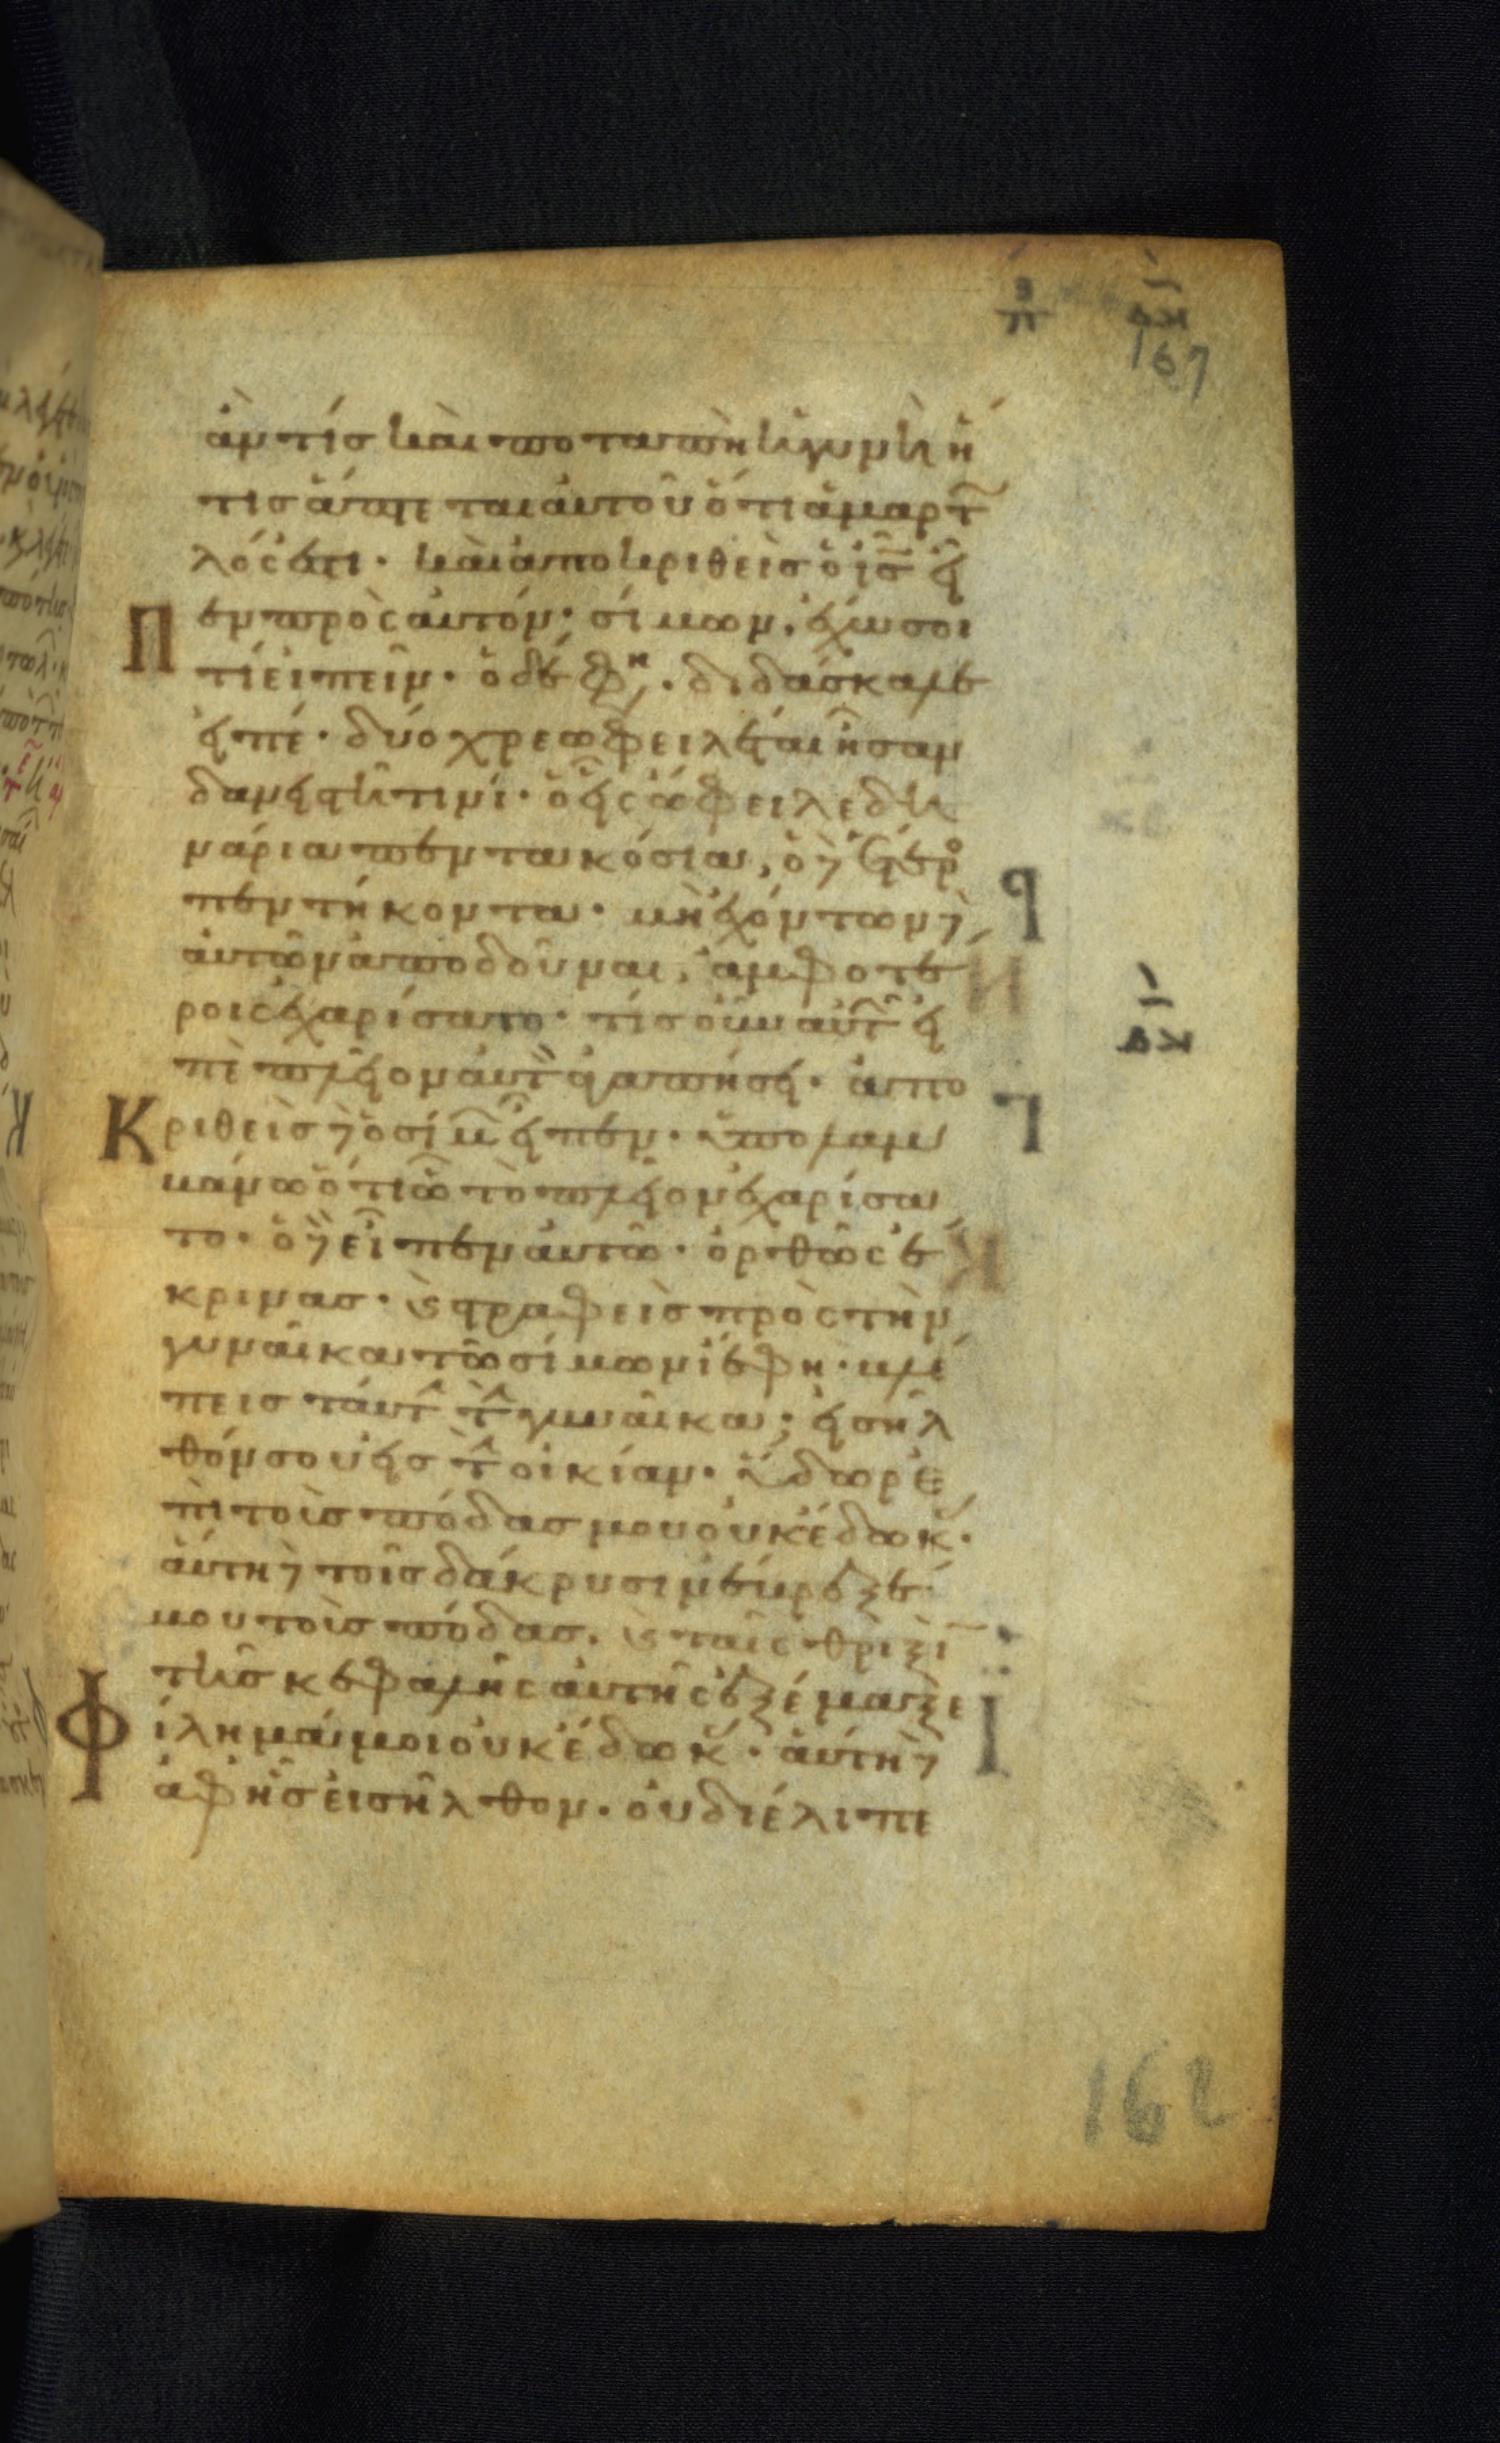 167
ὰν τίσ καὶ ποταπὴ ἡ γυνὴ ἥ
τισ ἅπτεται αὐτοῦ ὅτι ἁμαρτ̃
λός ἐστι· καὶ ἀποκριθεὶσ ὁ ις̅ εἶ
πεν πρὸς αὐτόν· σίμων, ἔχω σοι
τί εἰπεῖν· ὁ δέ φη· διδάσκαλε
εἰπέ· δύο χρεωφειλέται ἦσαν
δανειστῆ τινί· ὁ εἷς ὤφειλε δη
νάρια πεντακόσια, ὁ δὲ ἕτερο
πεντήκοντα· μὴ ἐχόντων δὲ
αὐτῶν ἀποδοῦναι, ἀμφοτέ
ροις ἐχαρίσατο· τίσ οὖν αὐτ εἰ
πὲ πλεῖον αὐτ ἀγαπήσει· ἀπο
Κριθεὶσ δὲ ὁ σίμ εἶπεν· ὑπολαμ
βάνω ὅτι ὧ τὸ πλεῖον ἐχαρίσα
το· ὁ δὲ εἶπεν αὐτῶ· ὀρθῶς ἔ
κρινας· ϗ στραφεὶς πρὸς τὴν
γυναῖκα τῶ σίμωνι ἔφη· βλέ
πεις ταύτ τ γυναῖκα; εἰσῆλ
θόν σου εἰς τ οἰκίαν· ὕδωρ ἐ
πὶ τοὺσ πόδασ μου οὐκ ἔδωκ·
αὕτη δὲ τοῖσ δάκρυσιν ἔβρεξέ
μου τοὺσ πόδασ. ϗ ταῖς θριξὶ
τῆσ κεφαλῆς αὐτῆς ἐξέμαξε
Φίλημά μοι οὐκ ἔδωκ· αὕτη δὲ
ἀφ ἧσ εἰσῆλθον· οὐ διέλιπε
162